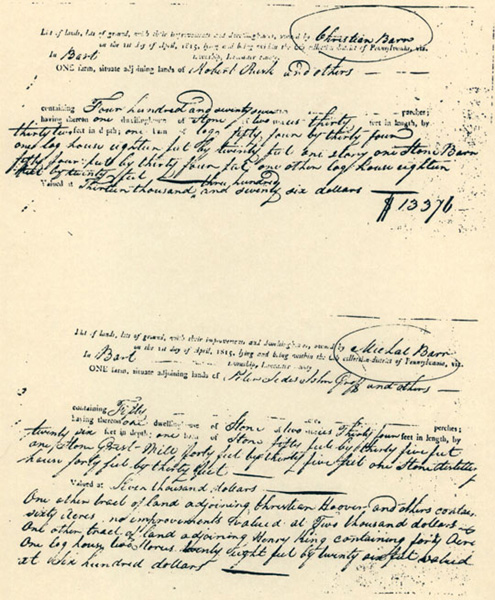 List of lands, lots of ground, with their improvements and dwelling houses, owned by Christian Barr
on the 1st day of April, 1815, lying and being within the collection district of Pennsylvania, viz.
In Bart township, Lancaster county
ONE farm, situate adjoining lands of Robert and others
containing Four hundred and seventy perches;
having thereon one dwelling house of Stone of two stories thirty feet in length, by
thirty two feet in depth; one barn of logs fifty four by thirty four
one log house eighteen feet by twenty feet one story one Stone Barn
fifty four feet by thirty four feet, one other log house eighteen
feet by twenty feet
three hundred
Valued at Thirteen thousand and seventy six dollars
$13376
List of lands, lots of ground, with their improvements and dwelling houses, owned by Michal Barr
on the 1st day of April, 1815, lying and being within the collection district of Pennsylvania, viz.
In Bart township, Lancaster county
ONE farm, situate adjoining lands of John and others
containing Fifty perches;
having thereon one dwelling house of Stone of two stories Thirty four feet in length, by
twenty six feet in depth; one barn of Stone fifty feet by thirty five feet
one, Stone Grist-Mill forty feet by thirty five feet one Stone
house forty feet by thirty feet
Valued at Seven thousand dollars
One other tract of land adjoining Christian Hoover and others
sixty Acres no improvements valued at Two thousand dollars
One other tract of land adjoining Henry King containing forty Acres
One log house two stories twenty eight feet by twenty six feet valued
at six hundred dollars